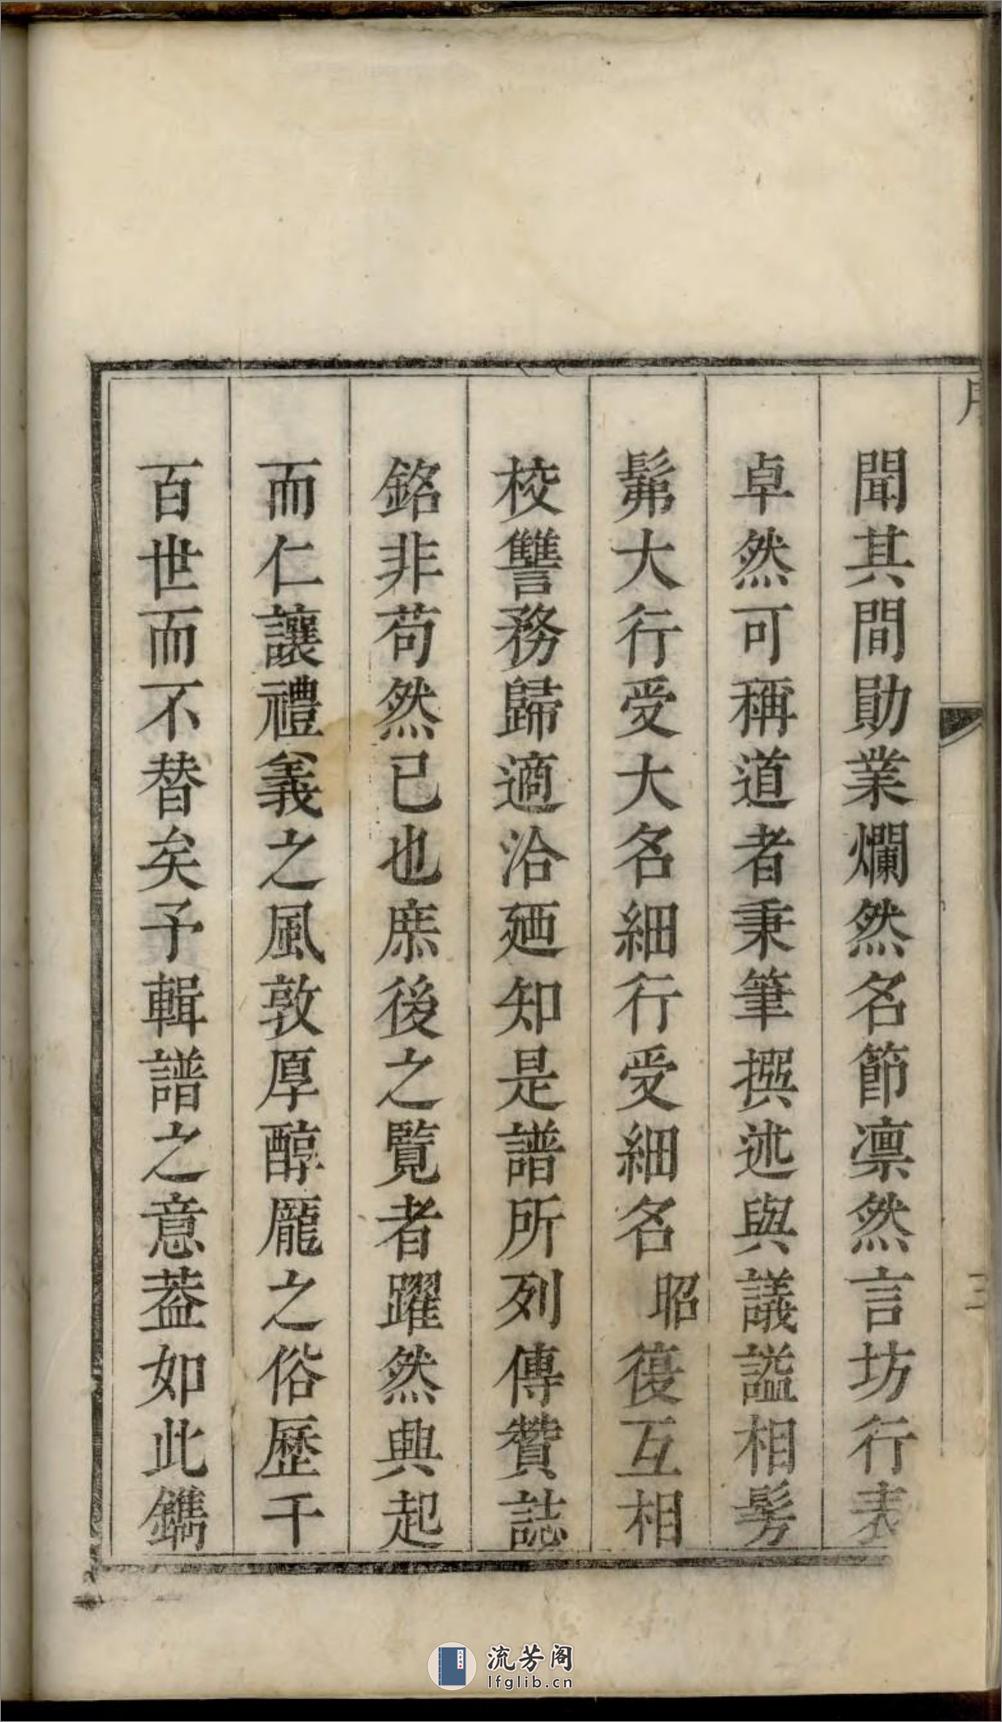 聞其間勛業爛然名節凛然言坊行表
卓然可稱道者秉筆撰述與議謚相髣
髴大行受大名細行受細名昭復互相
校讐務歸適洽廼知是譜所列傳贊誌
銘非苟然已也庶後之覽者躍然興起
而仁讓禮義之風敦厚醇龐之俗歷千
百世而不替矣予輯譜之意葢如此鐫
流芳阁
lfglib.cn